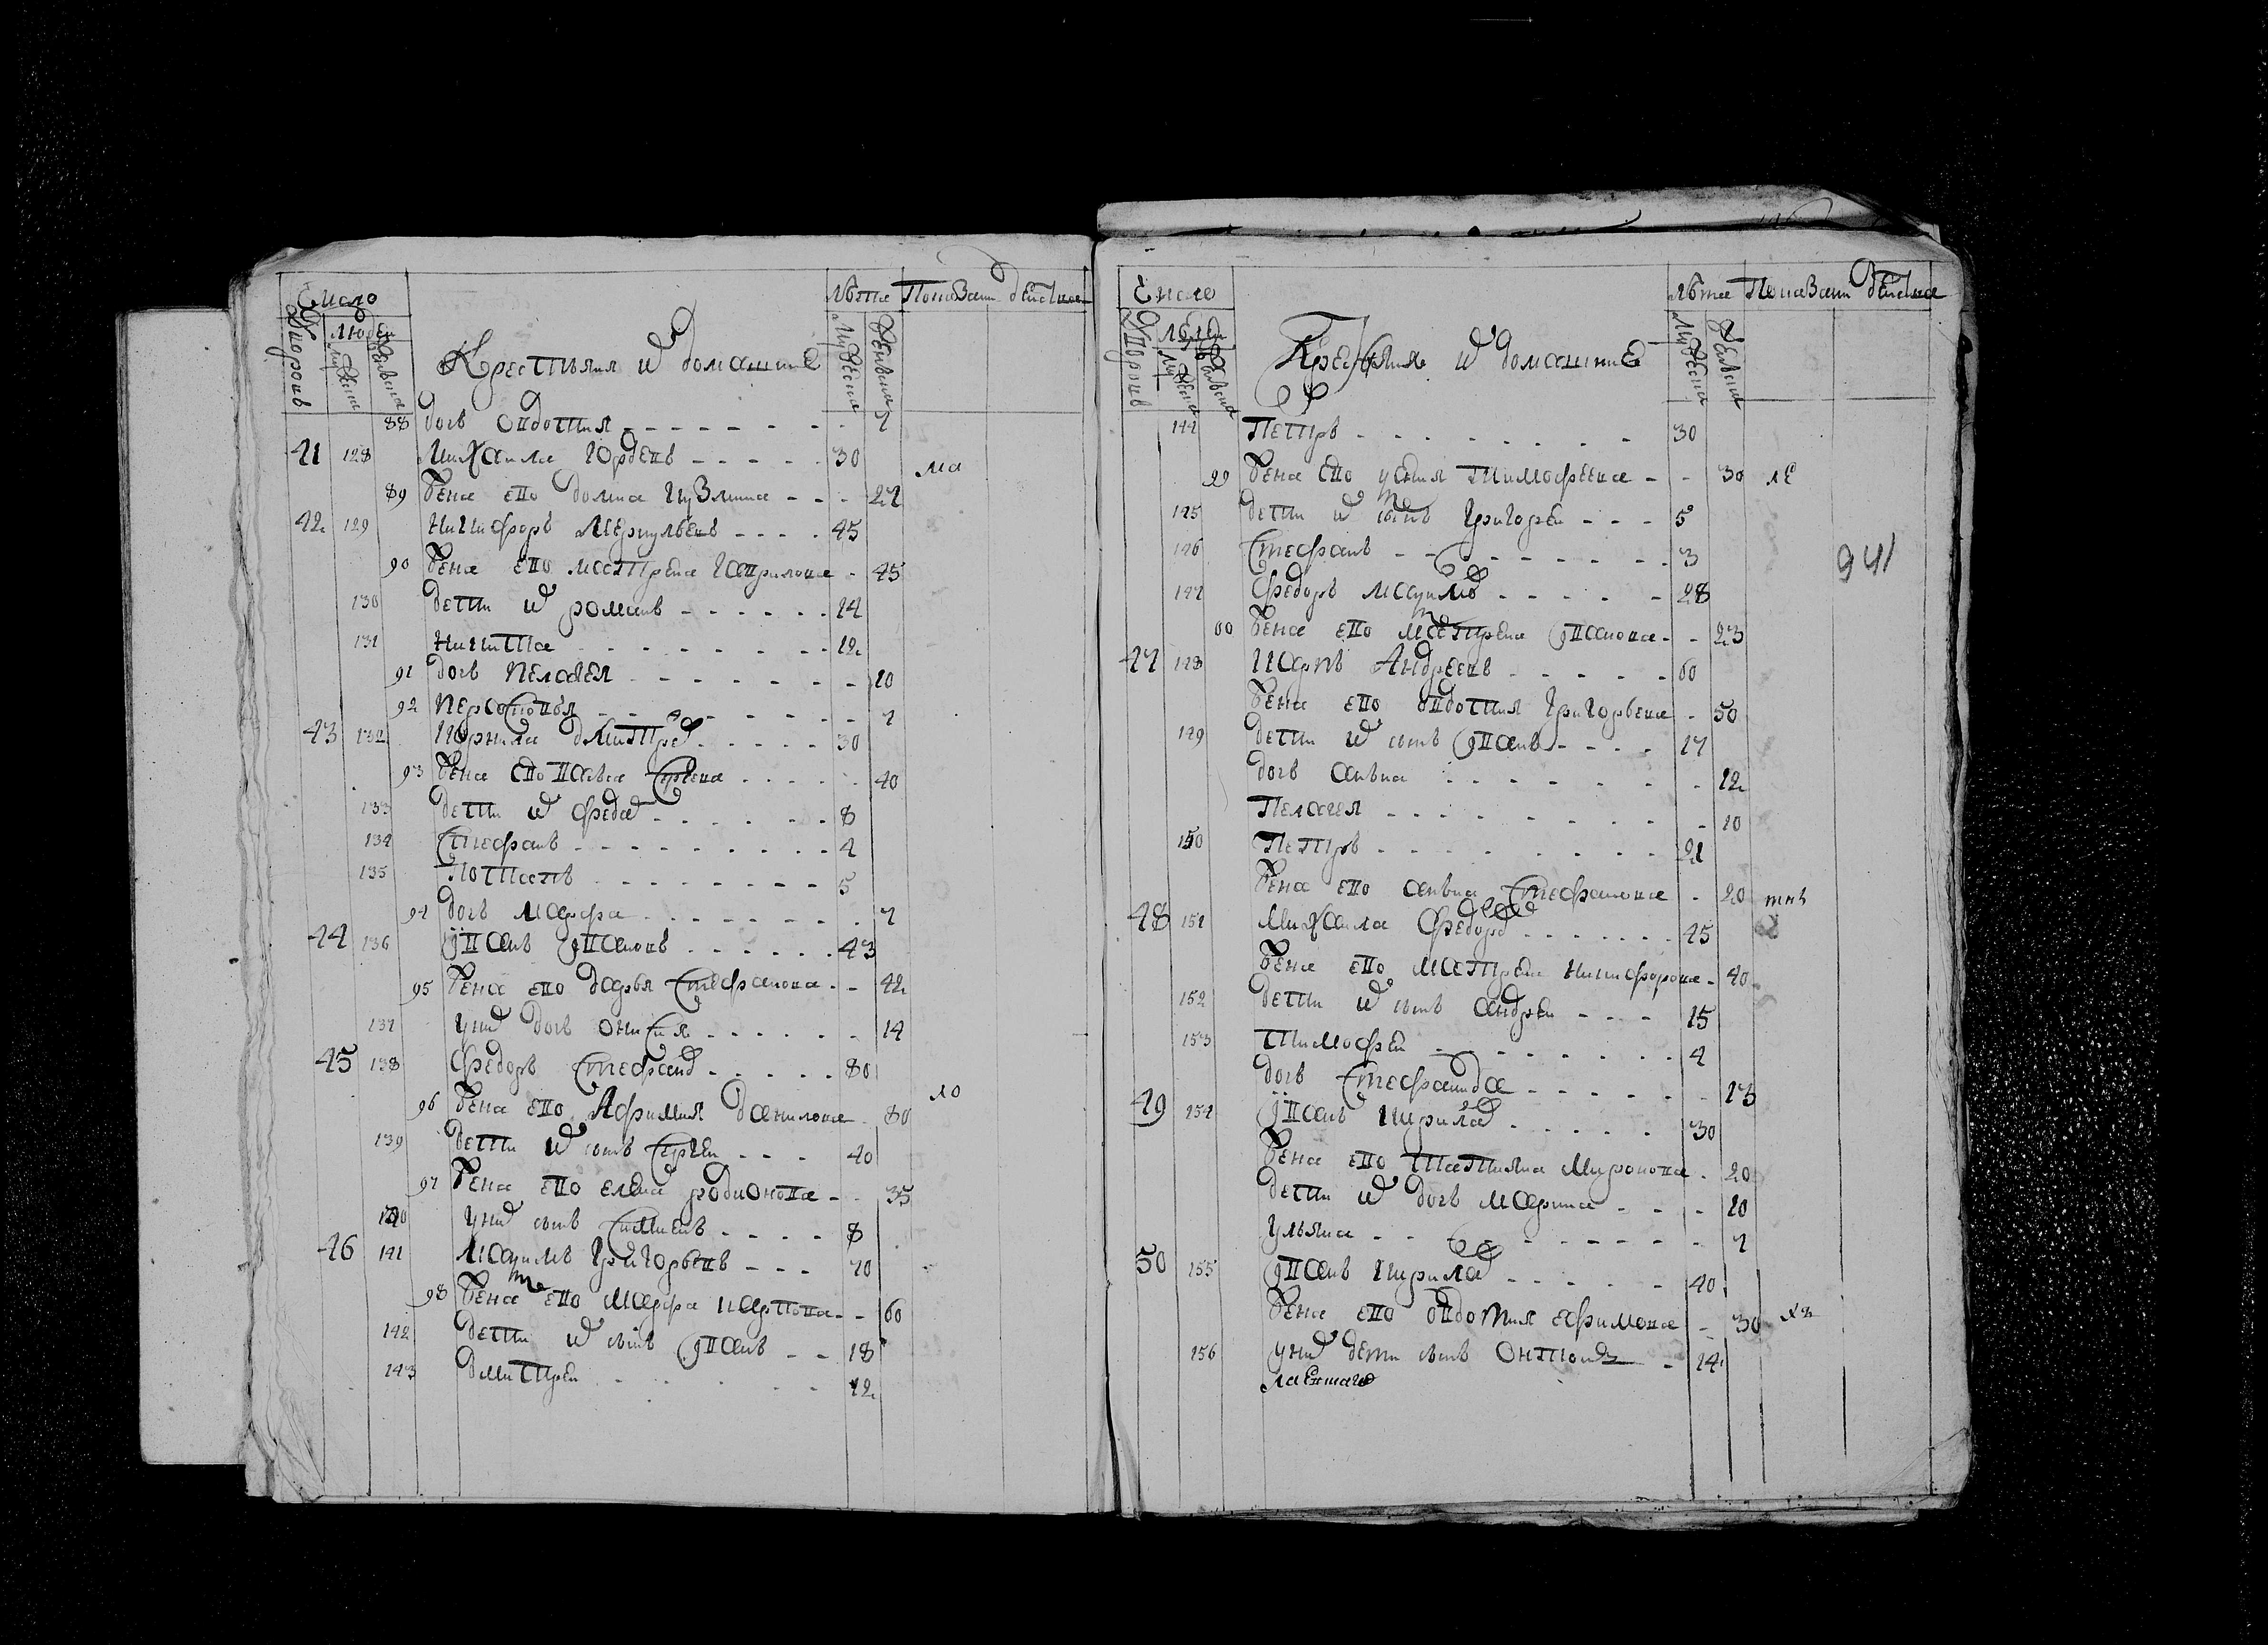 Число
Дворовъ
Людей
Мужеска
Женска
Крестьяня и домашние
Лѣта
Мужеска
Женска
Показани действа
88 дочь Овдотия 7
41 128 Михаила Гордѣевъ 30
89 жена ево Домна Кузмина 27
42 129 Никифоръ Меркульевъ 45
90 жена ево Матрена Гаврилова 45
130 дети их Романъ 14
131 Никита 12
91 дочь Пелагея 10
92 Персковья 7
43 132 Корнила Дмитрев 30
93 жена ево Павла Сргѣева 40
133 дети их Федор 8
134 Стефанъ 4
135 Потапъ 5
94 дочь Марфа 7
44 136 Іванъ Івановъ 43
95 жена ево Дарья Стефанова 42
137 у них дочь Онисия 14
45 138 Федоръ Стефанов 80
96 жена ево Афимия Данилова 80
139 дети их сынъ Сергѣи 40
97 жена ево Елена Родионова 35
140 у них сынъ Симионъ 8
46 141 Маѯимъ Григорьевъ 70
98 жена ево Марфа Карпова 60
142 дети их сынъ Іванъ 18
143 Дмитреи 12
Число
Дворовъ
Людей
Мужеска
Женска
Крестьяня и домашние
Лѣта
Мужеска
Женска
Показани действа
144 Петръ 30
99 жена ево Ѯения Тимофеева 30
145 дети их сынъ Григореи 5
146 Стефанъ 3
941
147 Федоръ Маѯимов 28
00 жена ево Матрена Іванова 23
47 148 Карпъ Андреевъ 60
жена ево Овдотия Григорьева 50
149 дети их сынъ Іванъ 17
дочь Анна 12
Пелагея 10
150 Петръ 21
жена ево Анна Стефанова 20
48 151 Михаила Федоров 45
жена ево Матрена Никифорова 40
152 дети их сынъ Андреи 15
153 Тимофеи 4
дочь Стефанида 13
49 154 Іванъ Кирилов 30
жена ево Татияна Миронова 20
дети их дочь Марина 10
Ульяна 7
50 155 Іванъ Кирилов 40
жена ево Овдотия Ефимова 30
156 у них дети сынъ Онтонъ 14